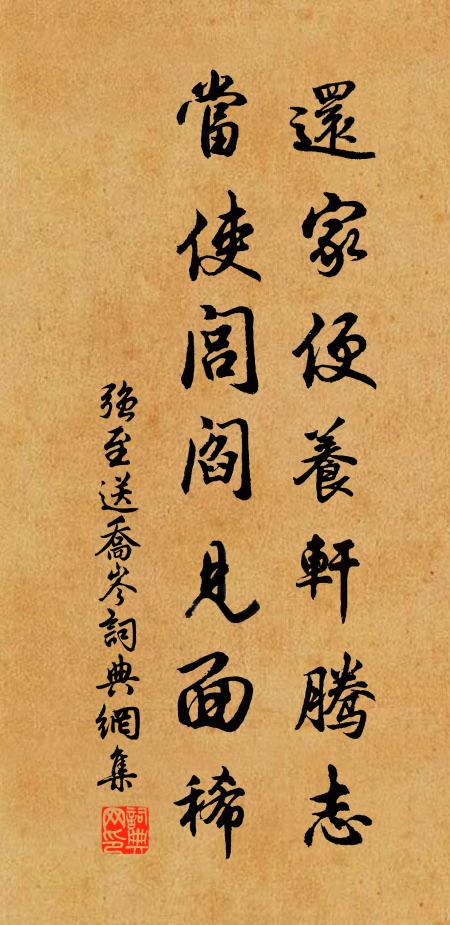 還家便養軒騰志
當使閭閻見面稀
強至送喬岑詞典網集
詞典網印